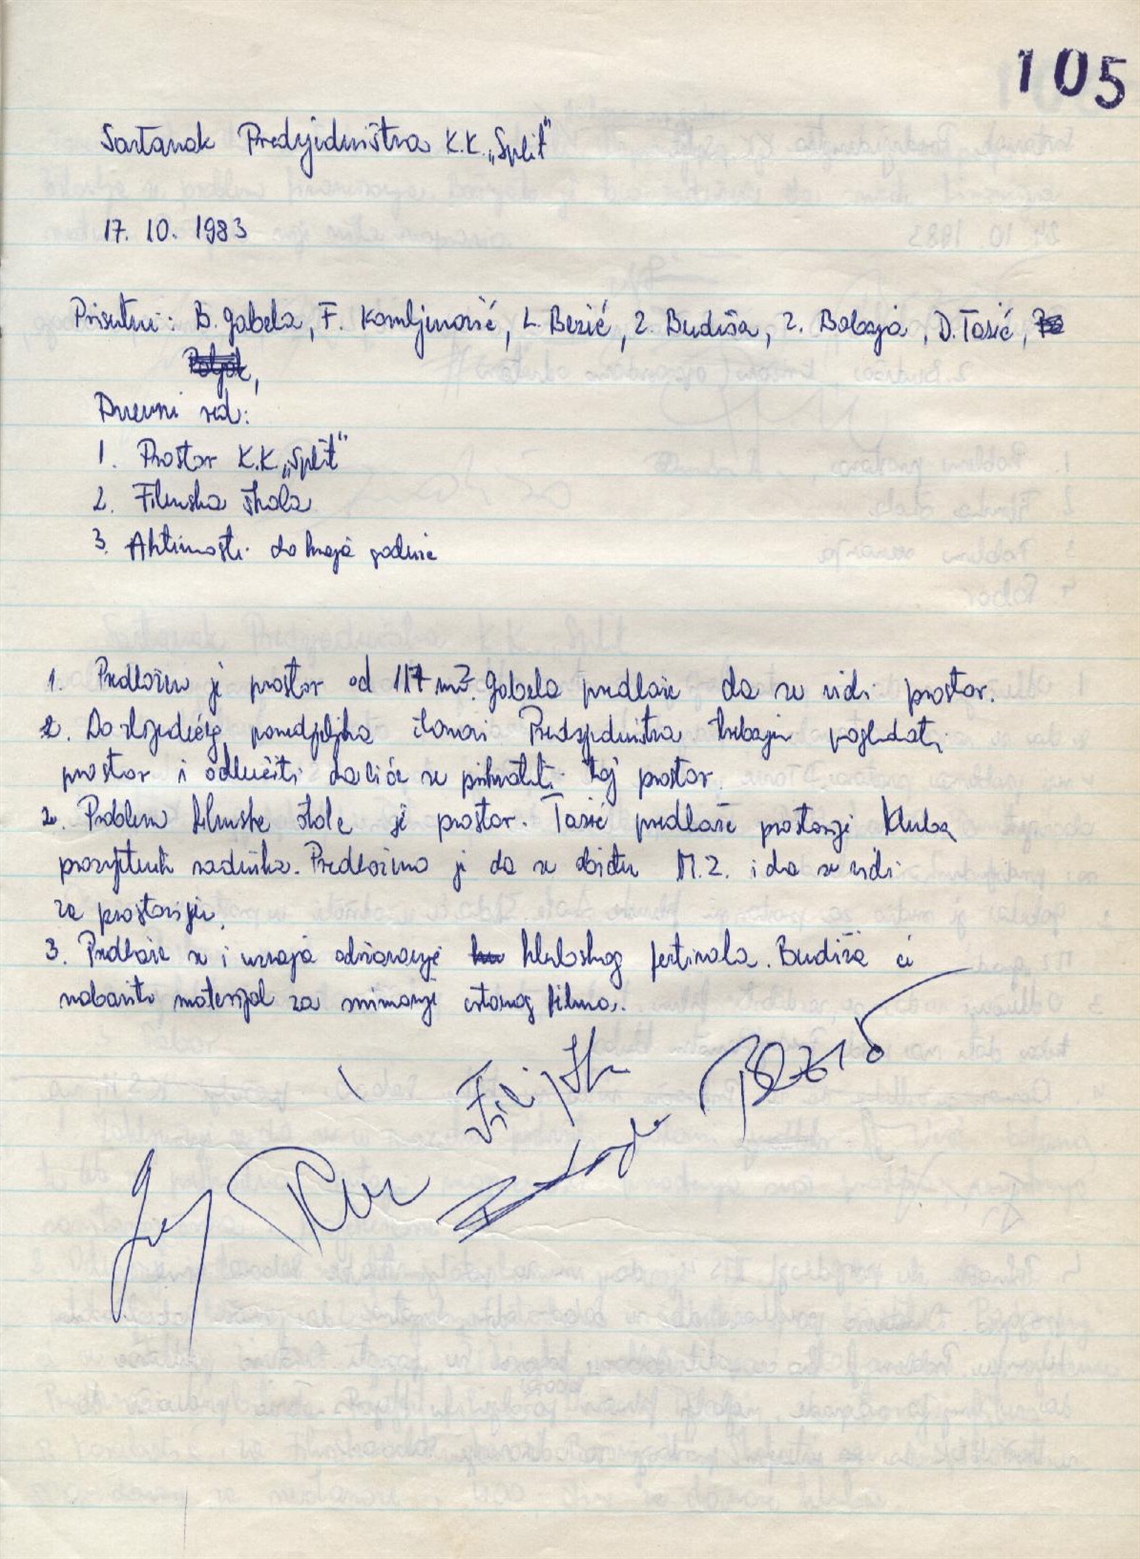 105
Sastanak Predsjedništva K.K. „Split“
17. 10. 1983
Prisutni: B. Gabela, F. , L. Bezić, Z. Budiša, Z. Bobanja, D. Tasić,
Dnevni red:
1. Prostor K.K. „Split“
2. Filmska škola
3. Aktivnosti do kraja godine
1. Predložen je prostor od 117 m2. Gabela predlaže da se vidi prostor.
Do slijedećeg ponedjeljka članovi Predsjedništva trebaju pogledati
prostor i odlučiti da li će se prihvatiti taj prostor.
2. Problem filmske škole je prostor. Tasić predlaže prostorije Kluba
prosvjetnih radnika. Predloženo je da se obiđu M.Z. i da se vidi
za prostoriju.
3. Predlaže se i održavanje klubskog festivala. Budiša će
nabaviti materijal za snimanje crtanog filma.
Bezić